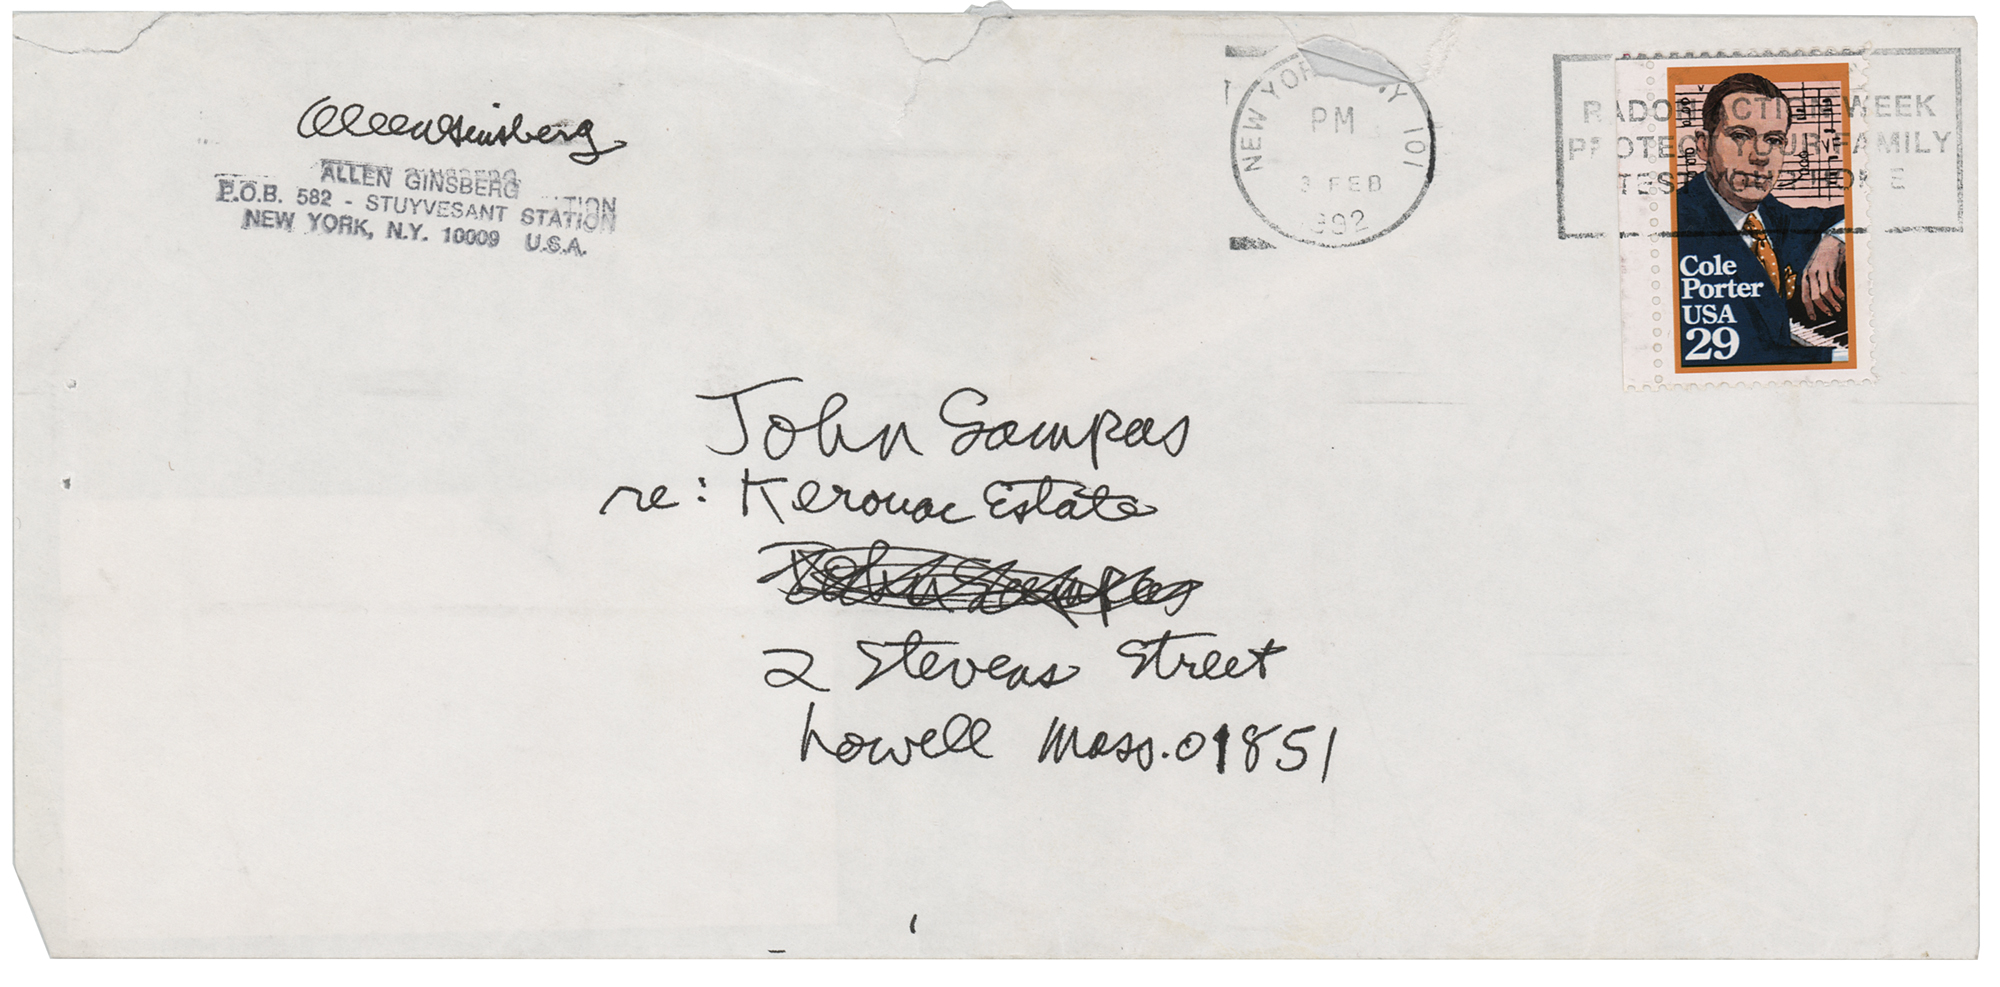 Allen Ginsberg
ALLEN GINSBERG
P.O.B. 582 - STUYVESANT STATION
NEW YORK, N.Y. 10009 U.S.A.
TION
NEW YORK, NY 101
PM
3 FEB
1992
RADON ACTION WEEK
PROTECT YOUR FAMILY
TEST YOUR HOME
Cole
Porter
USA
29
John Sampas
re: Kerouac Estate
John Sampas
2 Stevens Street
Lowell Mass. 01851